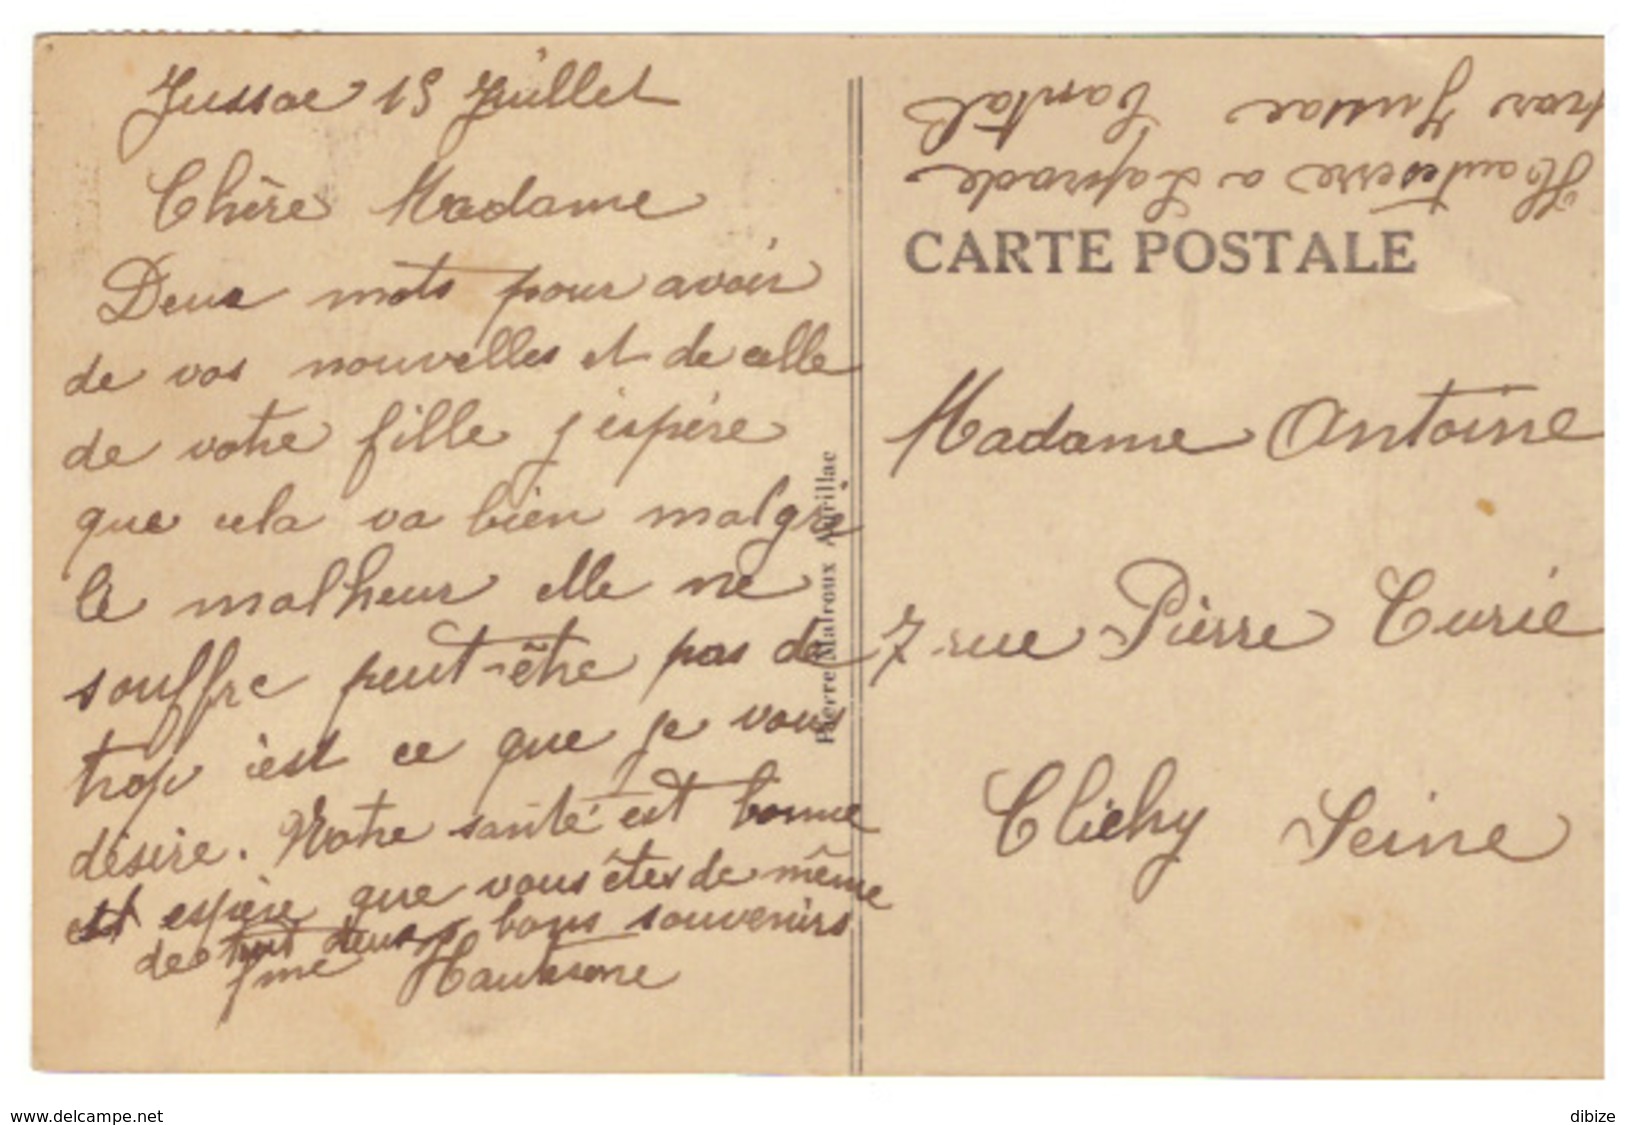 Jussac 15 Juillet
Chère Madame
Deux mots pour avoir
de vos nouvelles et de celle
de votre fille j'espère
que cela va bien malgré
le malheur elle ne
souffre peut-être pas de
trop c'est ce que je vous
désire. Notre santé est bonne
et espère que vous êtes de même
de tout deux bons souvenirs
Mme Hauteserre
Pierre Malroux Aurillac
Hauteserre a Laprade
par Jussac Cantal
CARTE POSTALE
Madame Antoine
7 rue Pierre Curie
Clichy Seine
www.delcampe.net
dibize